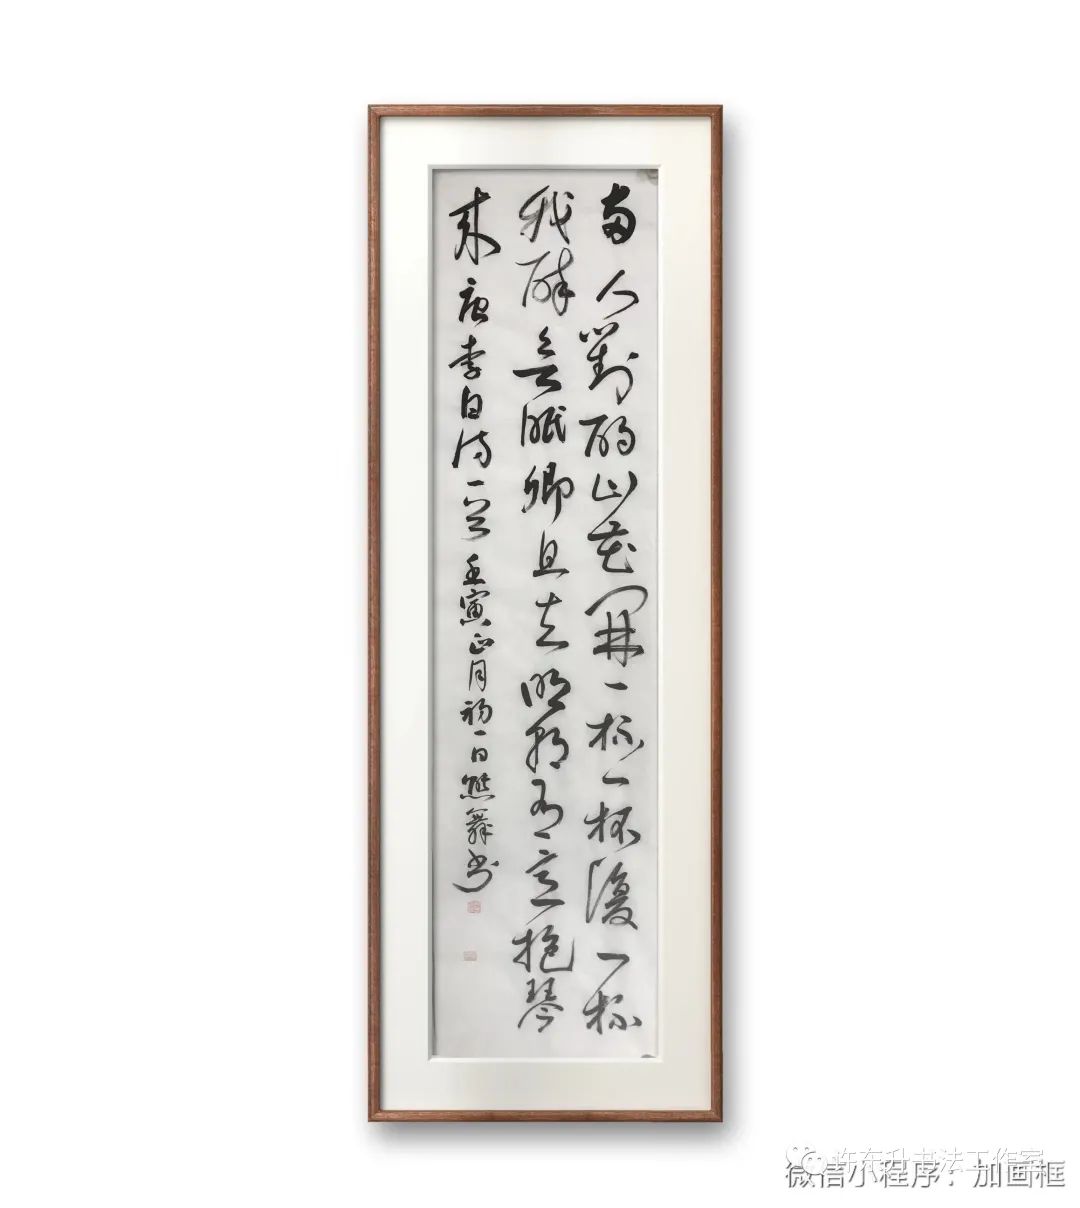 兩人對酌山花開一杯一杯復一杯
我醉欲眠卿且去明朝有意抱琴
來唐李白诗一首壬寅正月初一日熊舞书
许东升书法工作室
微信小程序：加画框